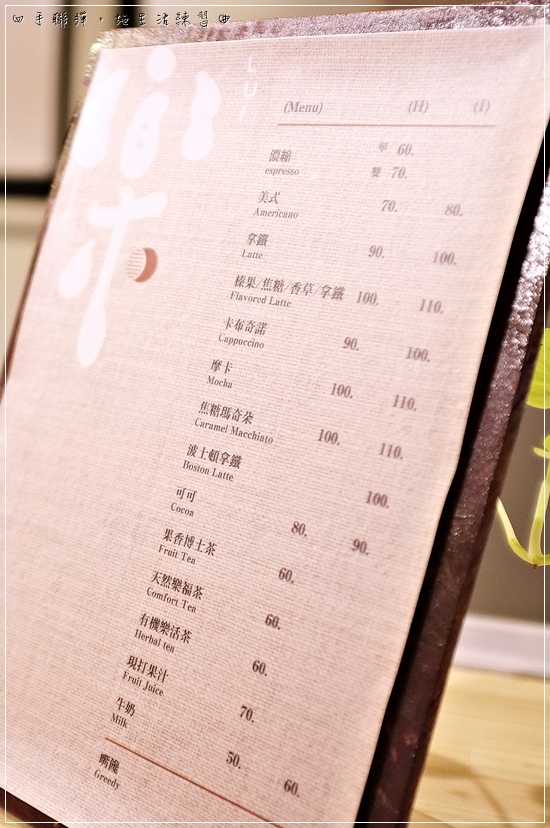 手聯彈，她生活練習曲
(Menu) (H) (I)
濃縮 單 60.
espresso 雙 70.
美式 70. 80.
Americano
拿鐵 90. 100.
Latte
榛果/焦糖/香草/拿鐵 100. 110.
Flavored Latte
卡布奇諾 90. 100.
Cappuccino
摩卡 100. 110.
Mocha
焦糖瑪奇朵 100. 110.
Caramel Macchiato
波士頓拿鐵 100.
Boston Latte
可可 80. 90.
Cocoa
果香博士茶 60.
Fruit Tea
天然樂福茶 60.
Comfort Tea
有機樂活茶 60.
Herbal tea
現打果汁 70.
Fruit Juice
牛奶 50. 60.
Milk
嘴饞
Greedy